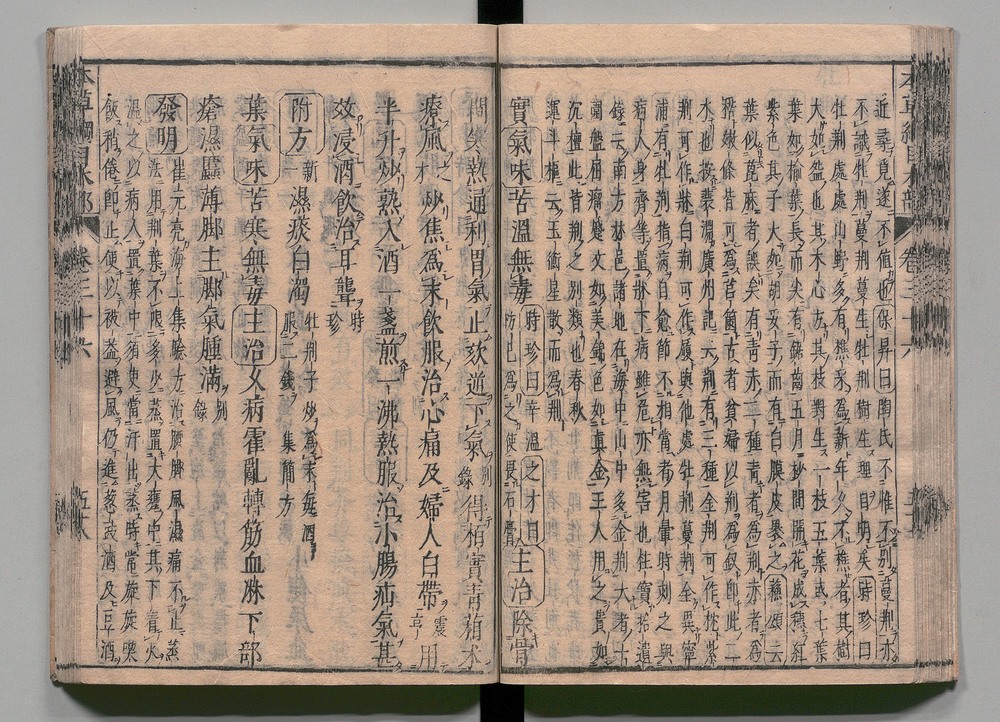 近尋覓遂不值也保昇曰陶氏不惟不別蔓荊亦
不識牡荊蔓荊蔓生牡荊樹生理自明矣時珍曰
牡荊處處山野多有樵采為薪年久不樵者其樹
大如盌也其木心方其枝對生一枝五葉或七葉
葉如榆葉長而尖有鋸齒五月杪間開花成穗紅
紫色其子大如胡荽子而有白膜皮裹之蘇頌云
葉似蓖麻者誤矣有青赤二種青者為荊赤者為
楛嫩條皆可為莒箘古者貧婦以荊為釵即此二
木也按裴淵廣州記云荊有三種金荊可作枕紫
荊可作牀白荊可作履與他處牡荊蔓荊全異寧
浦有牡荊指病自愈節不相當者月暈時刻之與
病人身齊等置牀下病雖危亦無害也杜寶拾遺
錄云南方林邑諸地在海中山中多金荊大者十
圍盤屈瘤蹙文如美錦色如真金工人用之貴如
沉檀此皆荊之別類也春秋
運斗樞云玉衡星散而為荊
實氣味苦溫無毒時珍曰辛溫之才曰
防己為之使畏石膏主治除骨
間寒熱通利胃氣止欬逆下氣別錄得柏實青葙朮
療風和之炒焦為末飲服治心痛及婦人白帶震亨用
半升炒熟入酒一盞煎一沸熱服治小腸疝氣甚
效浸酒飲治耳聾時珍
附方新濕痰白濁牡荊子炒為末每酒
服二錢集簡方
葉氣味苦寒無毒主治久病霍亂轉筋血淋下部
瘡濕䘌薄脚主脚氣腫滿別錄
發明崔元亮海上集驗方治腰脚風濕痛不止蒸
法用荊葉不限多少蒸置大甕中其下着火
溫之以病人置葉中須臾當汗出蒸時常旋旋喫
飯稍倦即止便以被蓋避風仍進葱豉酒及豆酒
本草綱目木部 卷三十六 五十八